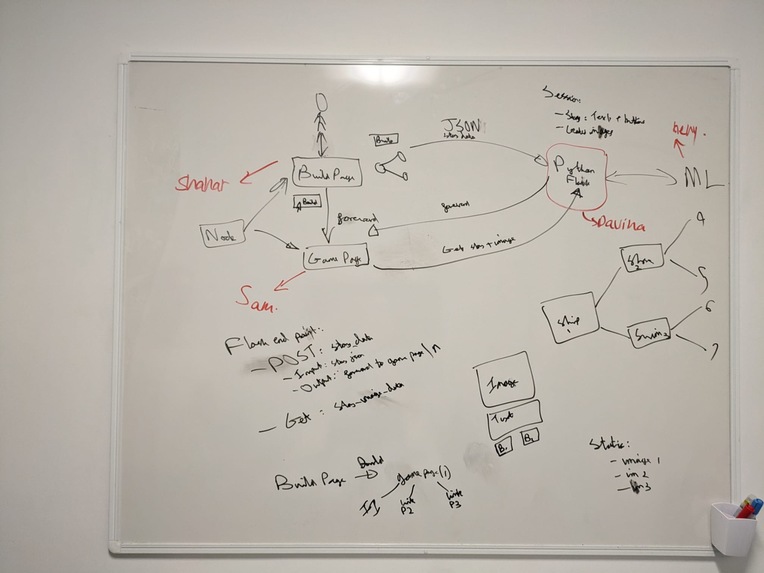 Session:
- Story: Text + buttons
JSON
story data
Build
henry.
Build Page
Python
Flask
ML
Shahar
Build
forward
Davina
Node
Game Page
Get story + image
4
Sam.
5
Ship
1
6
Swim
7
Flask end point:
- POST: story_data
- Input: story json
- Output: forward to game page/n
Image
- Get: story_image_data
Text
B1
B2
Static:
Build Page
Build
game page(1)
- image 1
- im 2
- im 3
link
P2
link
P3